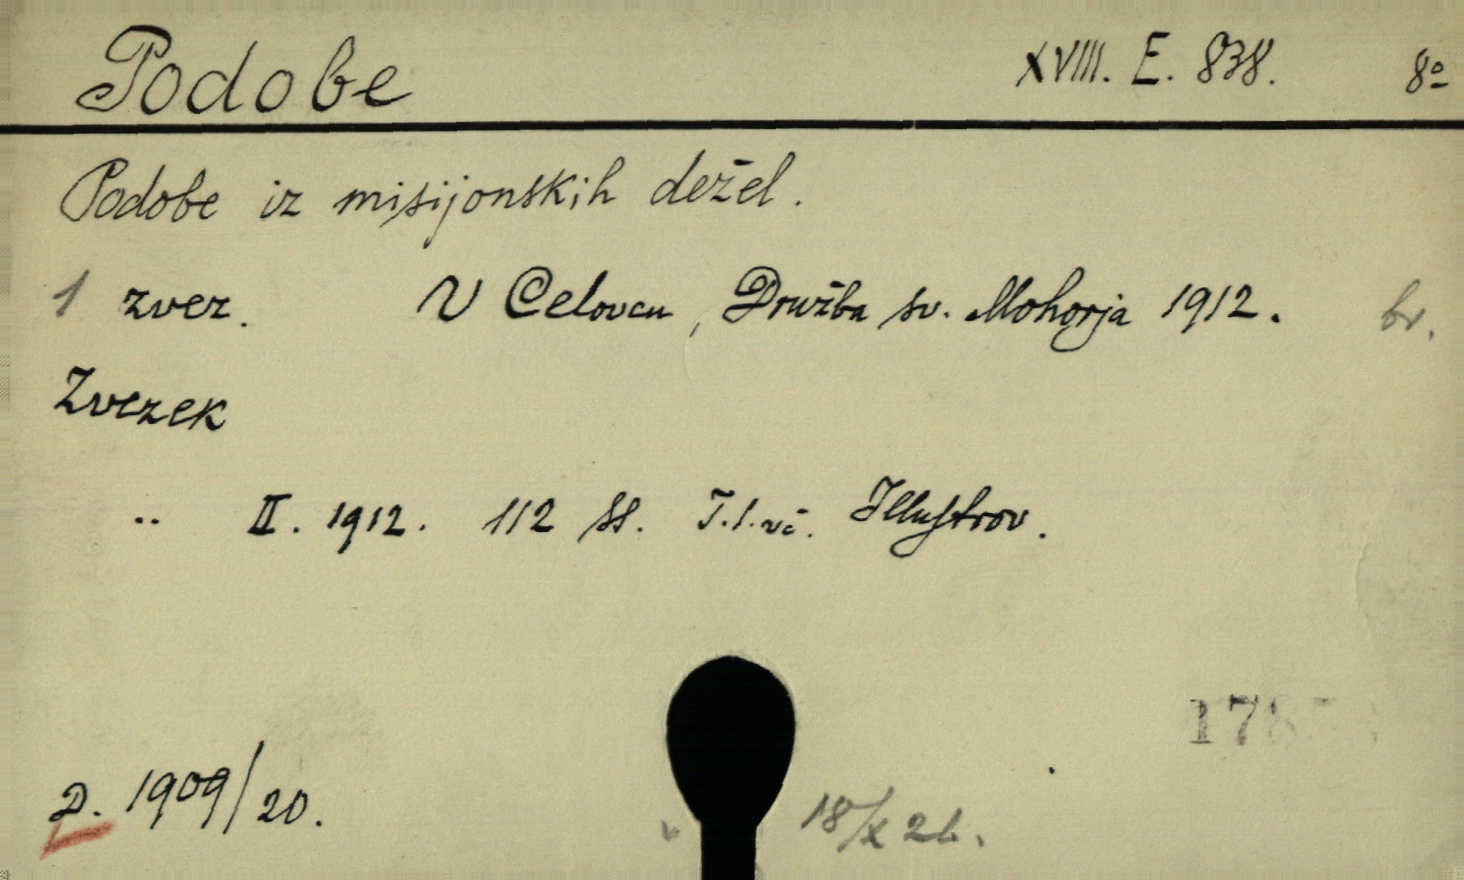 Podobe XVIII. E. 838. 8º
Podobe iz misijonskih dežel.
1 zvez. V Celovcu, Družba sv. Mohorja 1912. br.
Zvezek
„ II. 1912. 112 ss. Illustrov.
D. 1909/20.
18/X